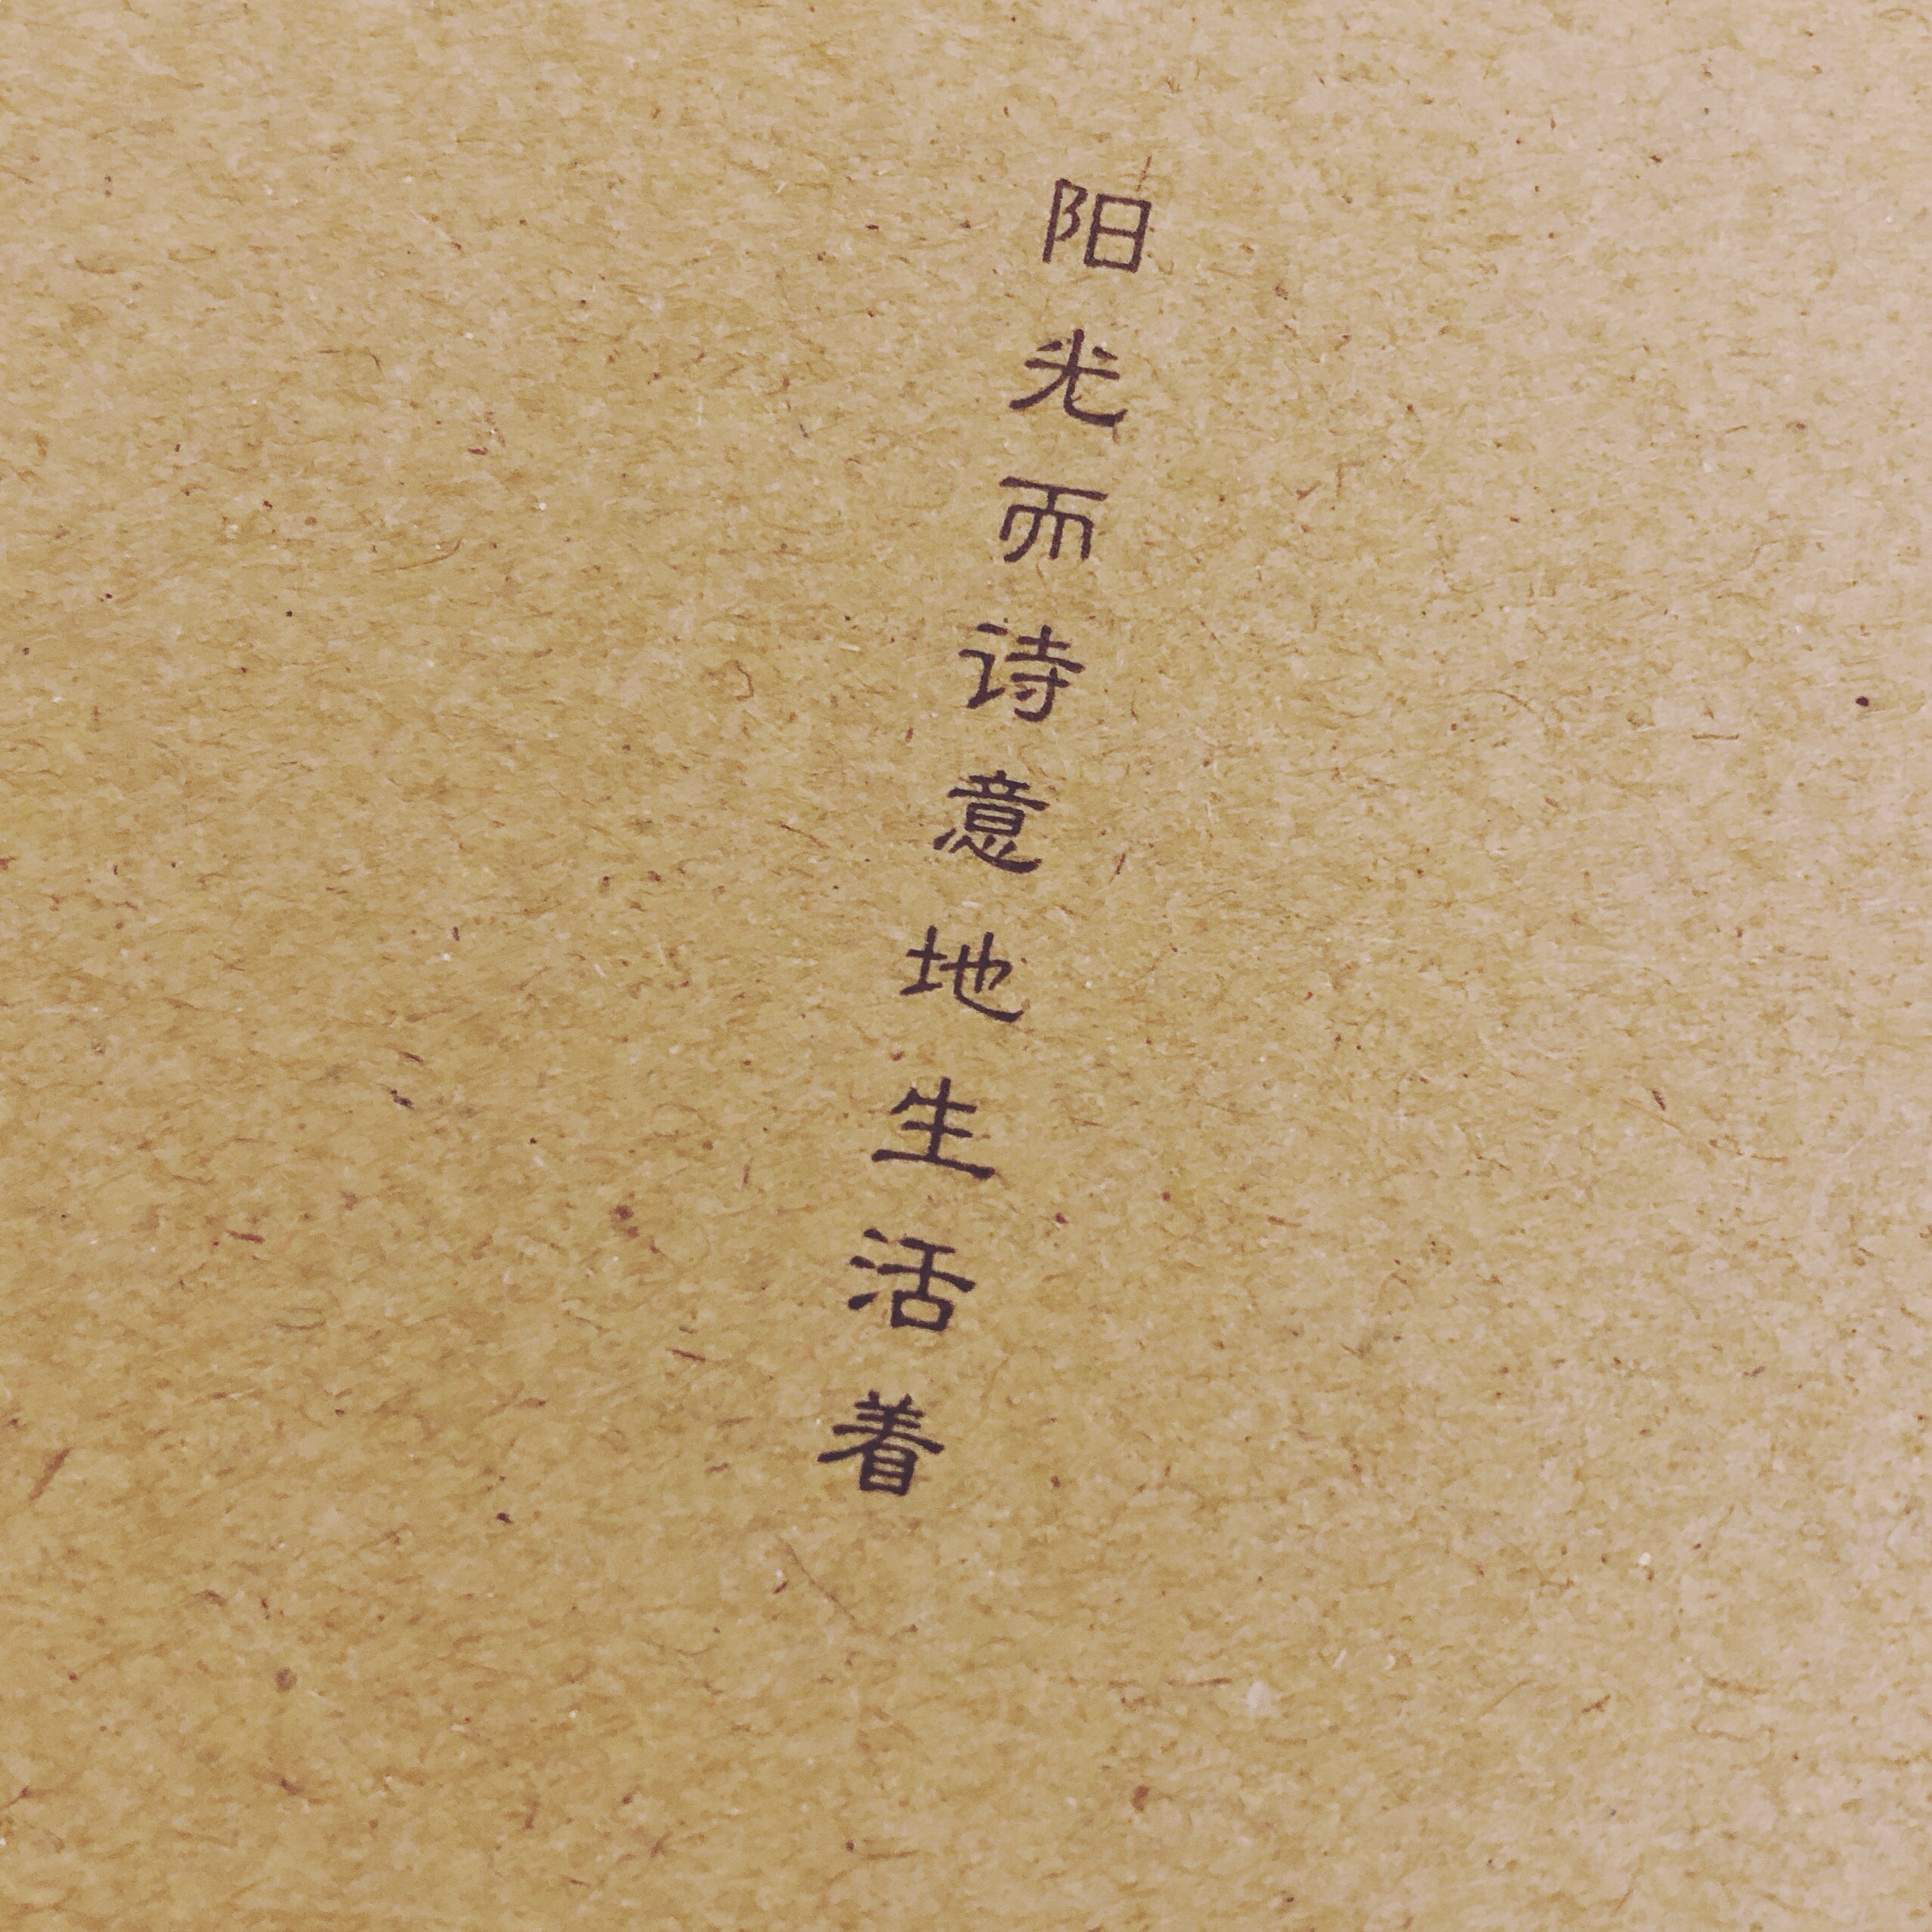 阳光而诗意地生活着